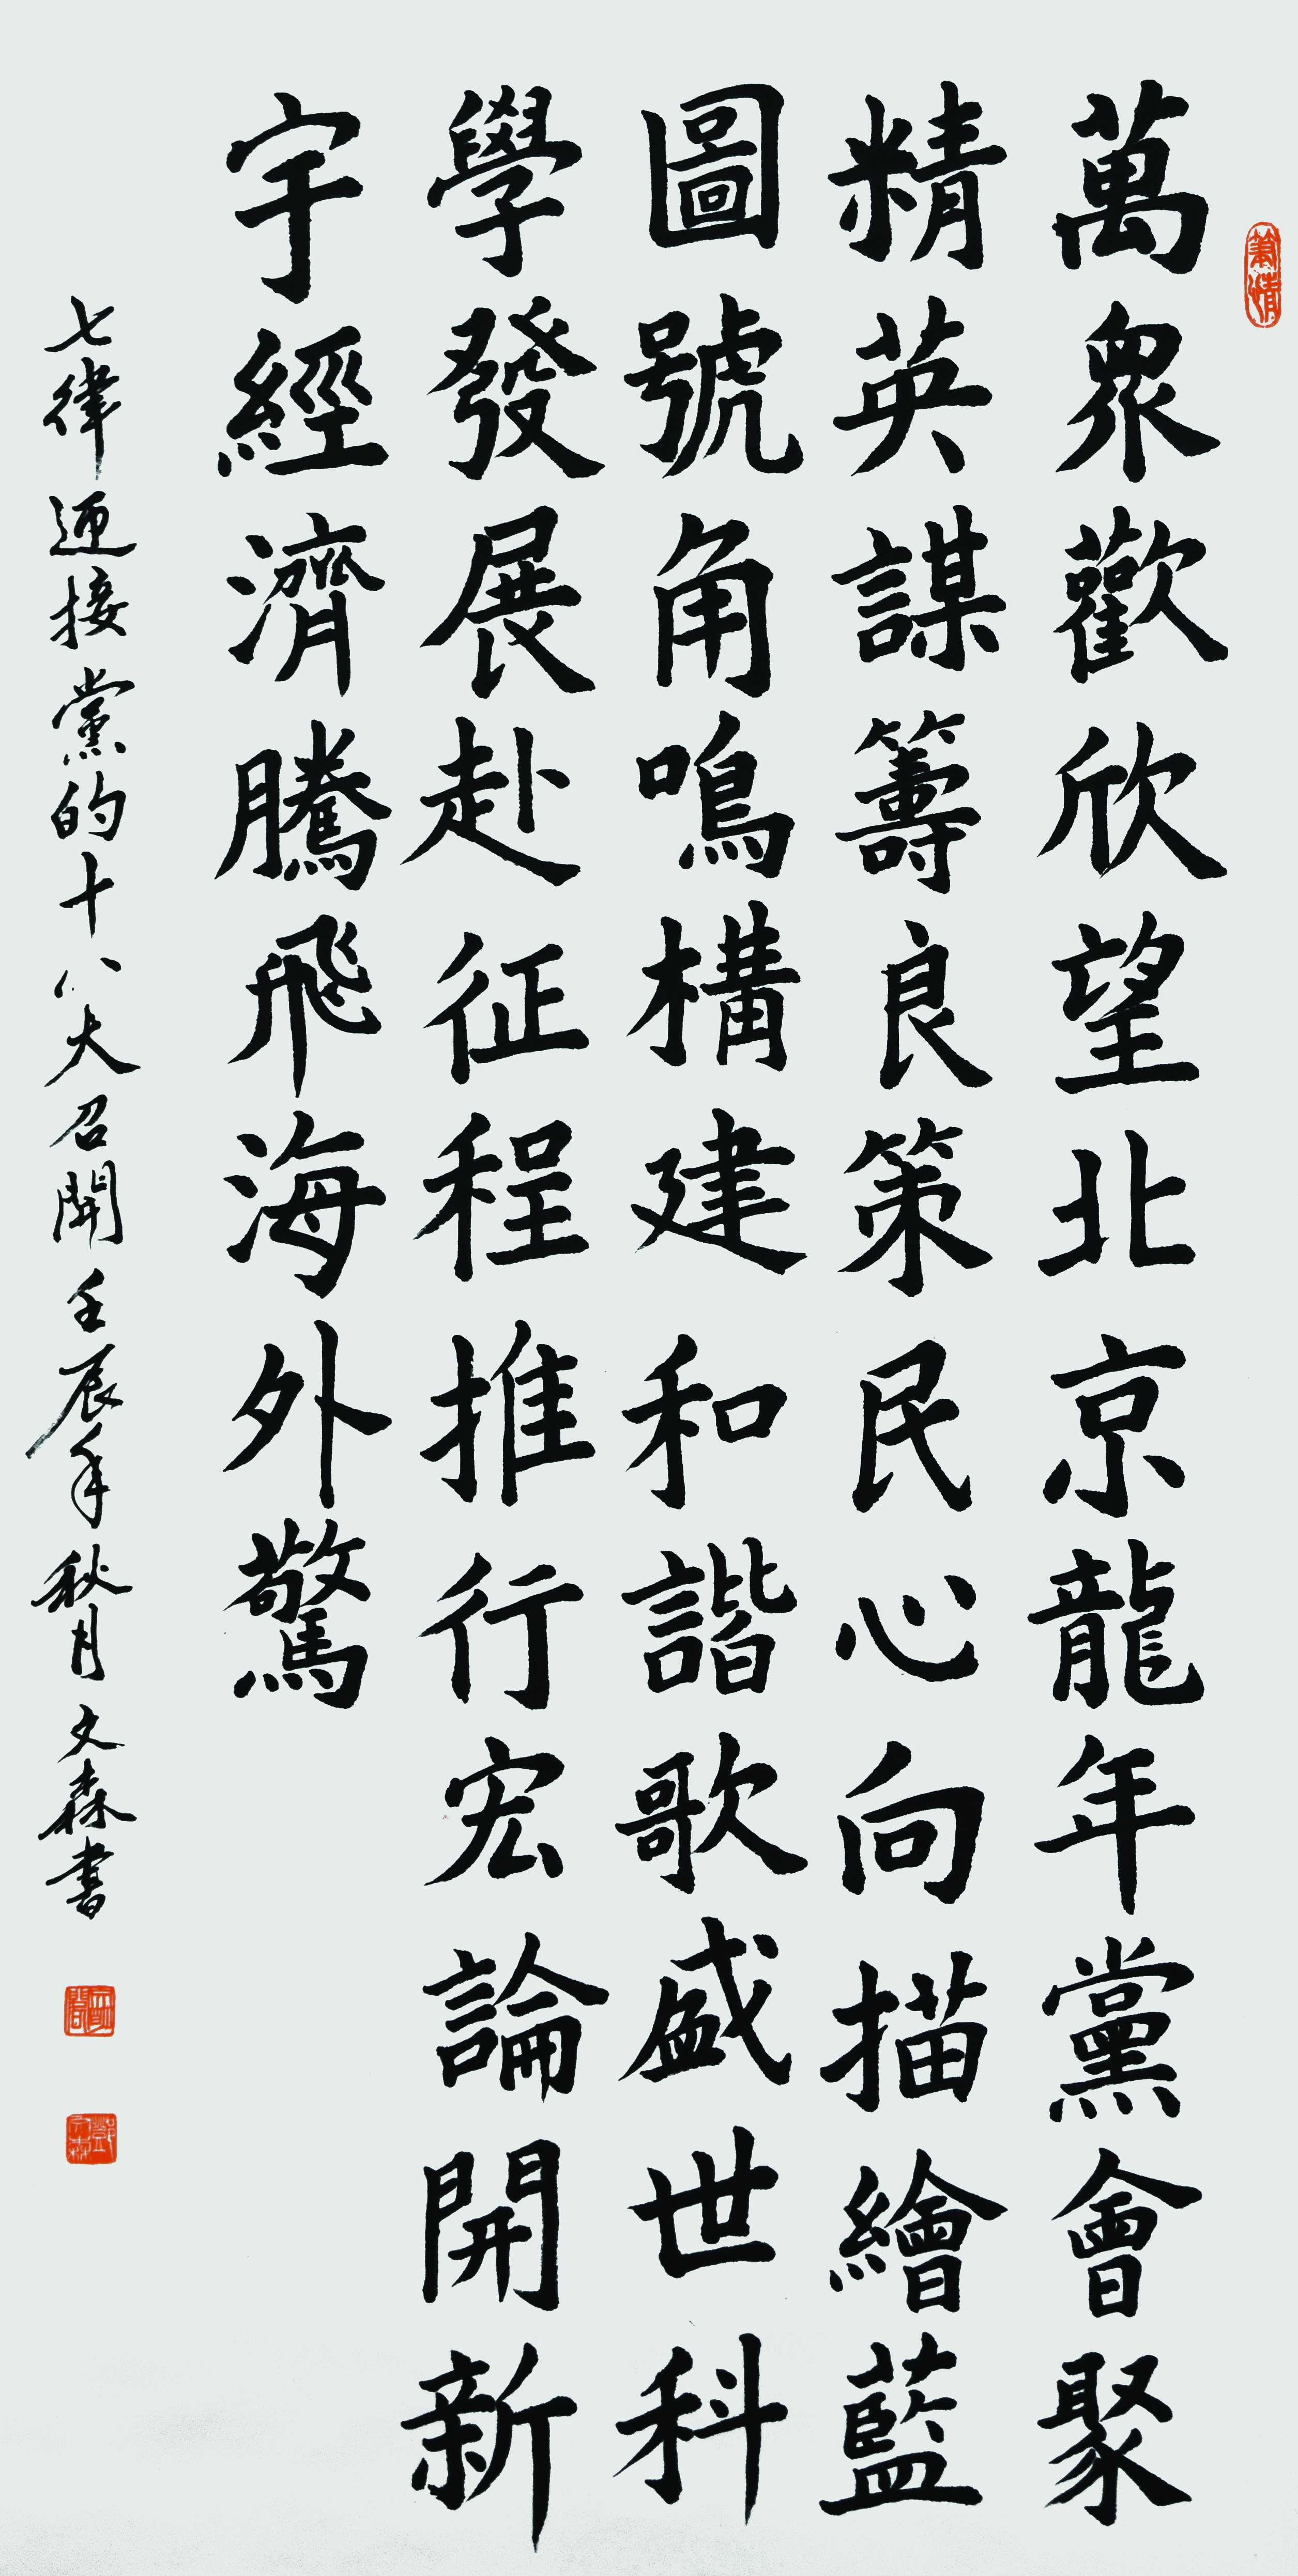 萬眾歡欣望北京龍年黨會聚
精英謀籌良策民心向描繪藍
圖號角鳴構建和諧歌盛世科
學發展赴征程推行宏論開新
宇經濟騰飛海外驚
七律迎接黨的十八大召開壬辰年秋月文森書